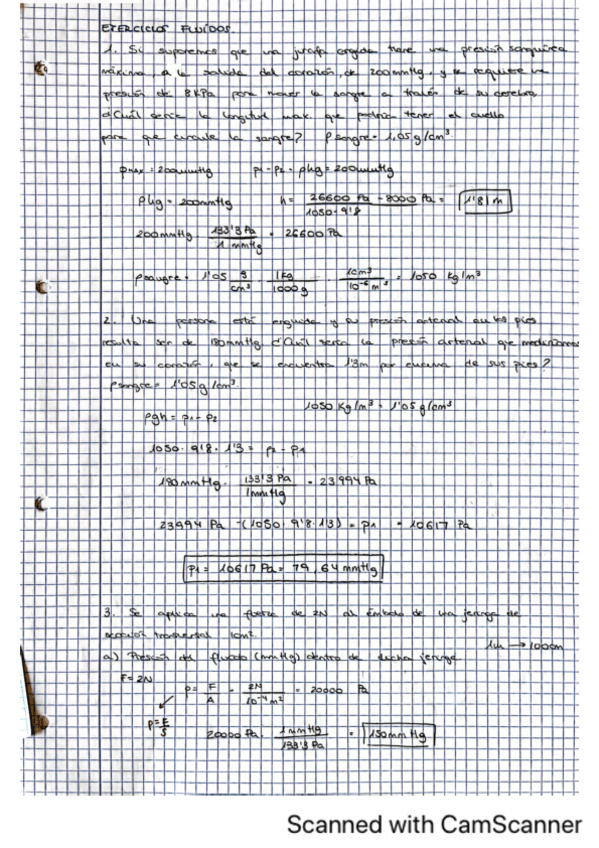 EJERCICIOS FLUÍDOS.
1. Si suponemos que una jirafa erguida tiene una presión sanguínea
máxima, a la salida del corazón, de 200mmHg, y se requiere una
presión de 8kPa para mover la sangre a través de su cerebro,
¿Cuál sería la longitud max. que podría tener el cuello
para que circule la sangre? ρsangre = 1,05g/cm³
pmax = 200mmHg p1 - p2 = ρhg = 200mmHg
ρhg = 200mmHg h = (26600 Pa - 8000 Pa)/(1050·9'8) = 1'81m
200mmHg · 133'3 Pa/1 mmHg = 26600 Pa
ρsangre = 1'05 g/cm³ · 1kg/1000g · 1cm³/10⁻⁶ m³ = 1050 kg/m³
2. Una persona está erguida y su presión arterial en los pies
resulta ser de 180mmHg ¿Cuál sería la presión arterial que mediríamos
en su corazón, que se encuentra 1'3m por encima de sus pies?
ρsangre = 1'05g/cm³.
1050 kg/m³ = 1'05 g/cm³
ρgh = p1 - p2
1050 · 9'8 · 1'3 = p2 - p1
180mmHg · 133'3 Pa/1mmHg = 23994 Pa
23994 Pa - (1050 · 9'8 · 1'3) = p1 = 10617 Pa
p1 = 10617 Pa = 79,64 mmHg
3. Se aplica una fuerza de 2N al émbolo de una jeringa de
sección transversal 1cm².
1m → 100cm
a) Presión del fluido (mmHg) dentro de dicha jeringa
F = 2N
p = F/A = 2N/10⁻⁴m² = 20000 Pa
p = F/S
20000 Pa · 1mmHg/133'3 Pa = 150mmHg
Scanned with CamScanner